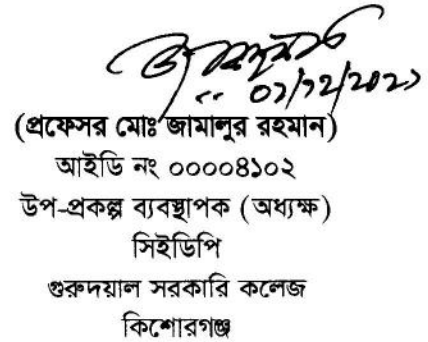 ০১/১২/২০২১
(প্রফেসর মোঃ জামালুর রহমান)
আইডি নং ০০০০৪১০২
উপ-প্রকল্প ব্যবস্থাপক (অধ্যক্ষ)
সিইডিপি
গুরুদয়াল সরকারি কলেজ
কিশোরগঞ্জ